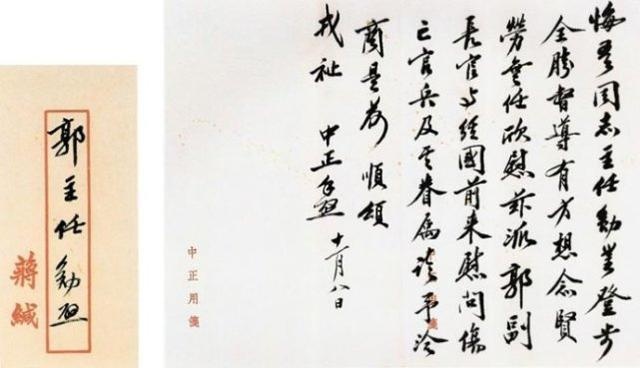 悔吾同志主任勛鑒登步
全勝督導有方想念賢
勞無任欣慰茲派郭副
長官与經國前來慰問傷
亡官兵及其眷屬請予洽
商是荷順頌
戎祉 中正手啟 十一月八日
中正用箋
郭主任勛啟
蔣緘